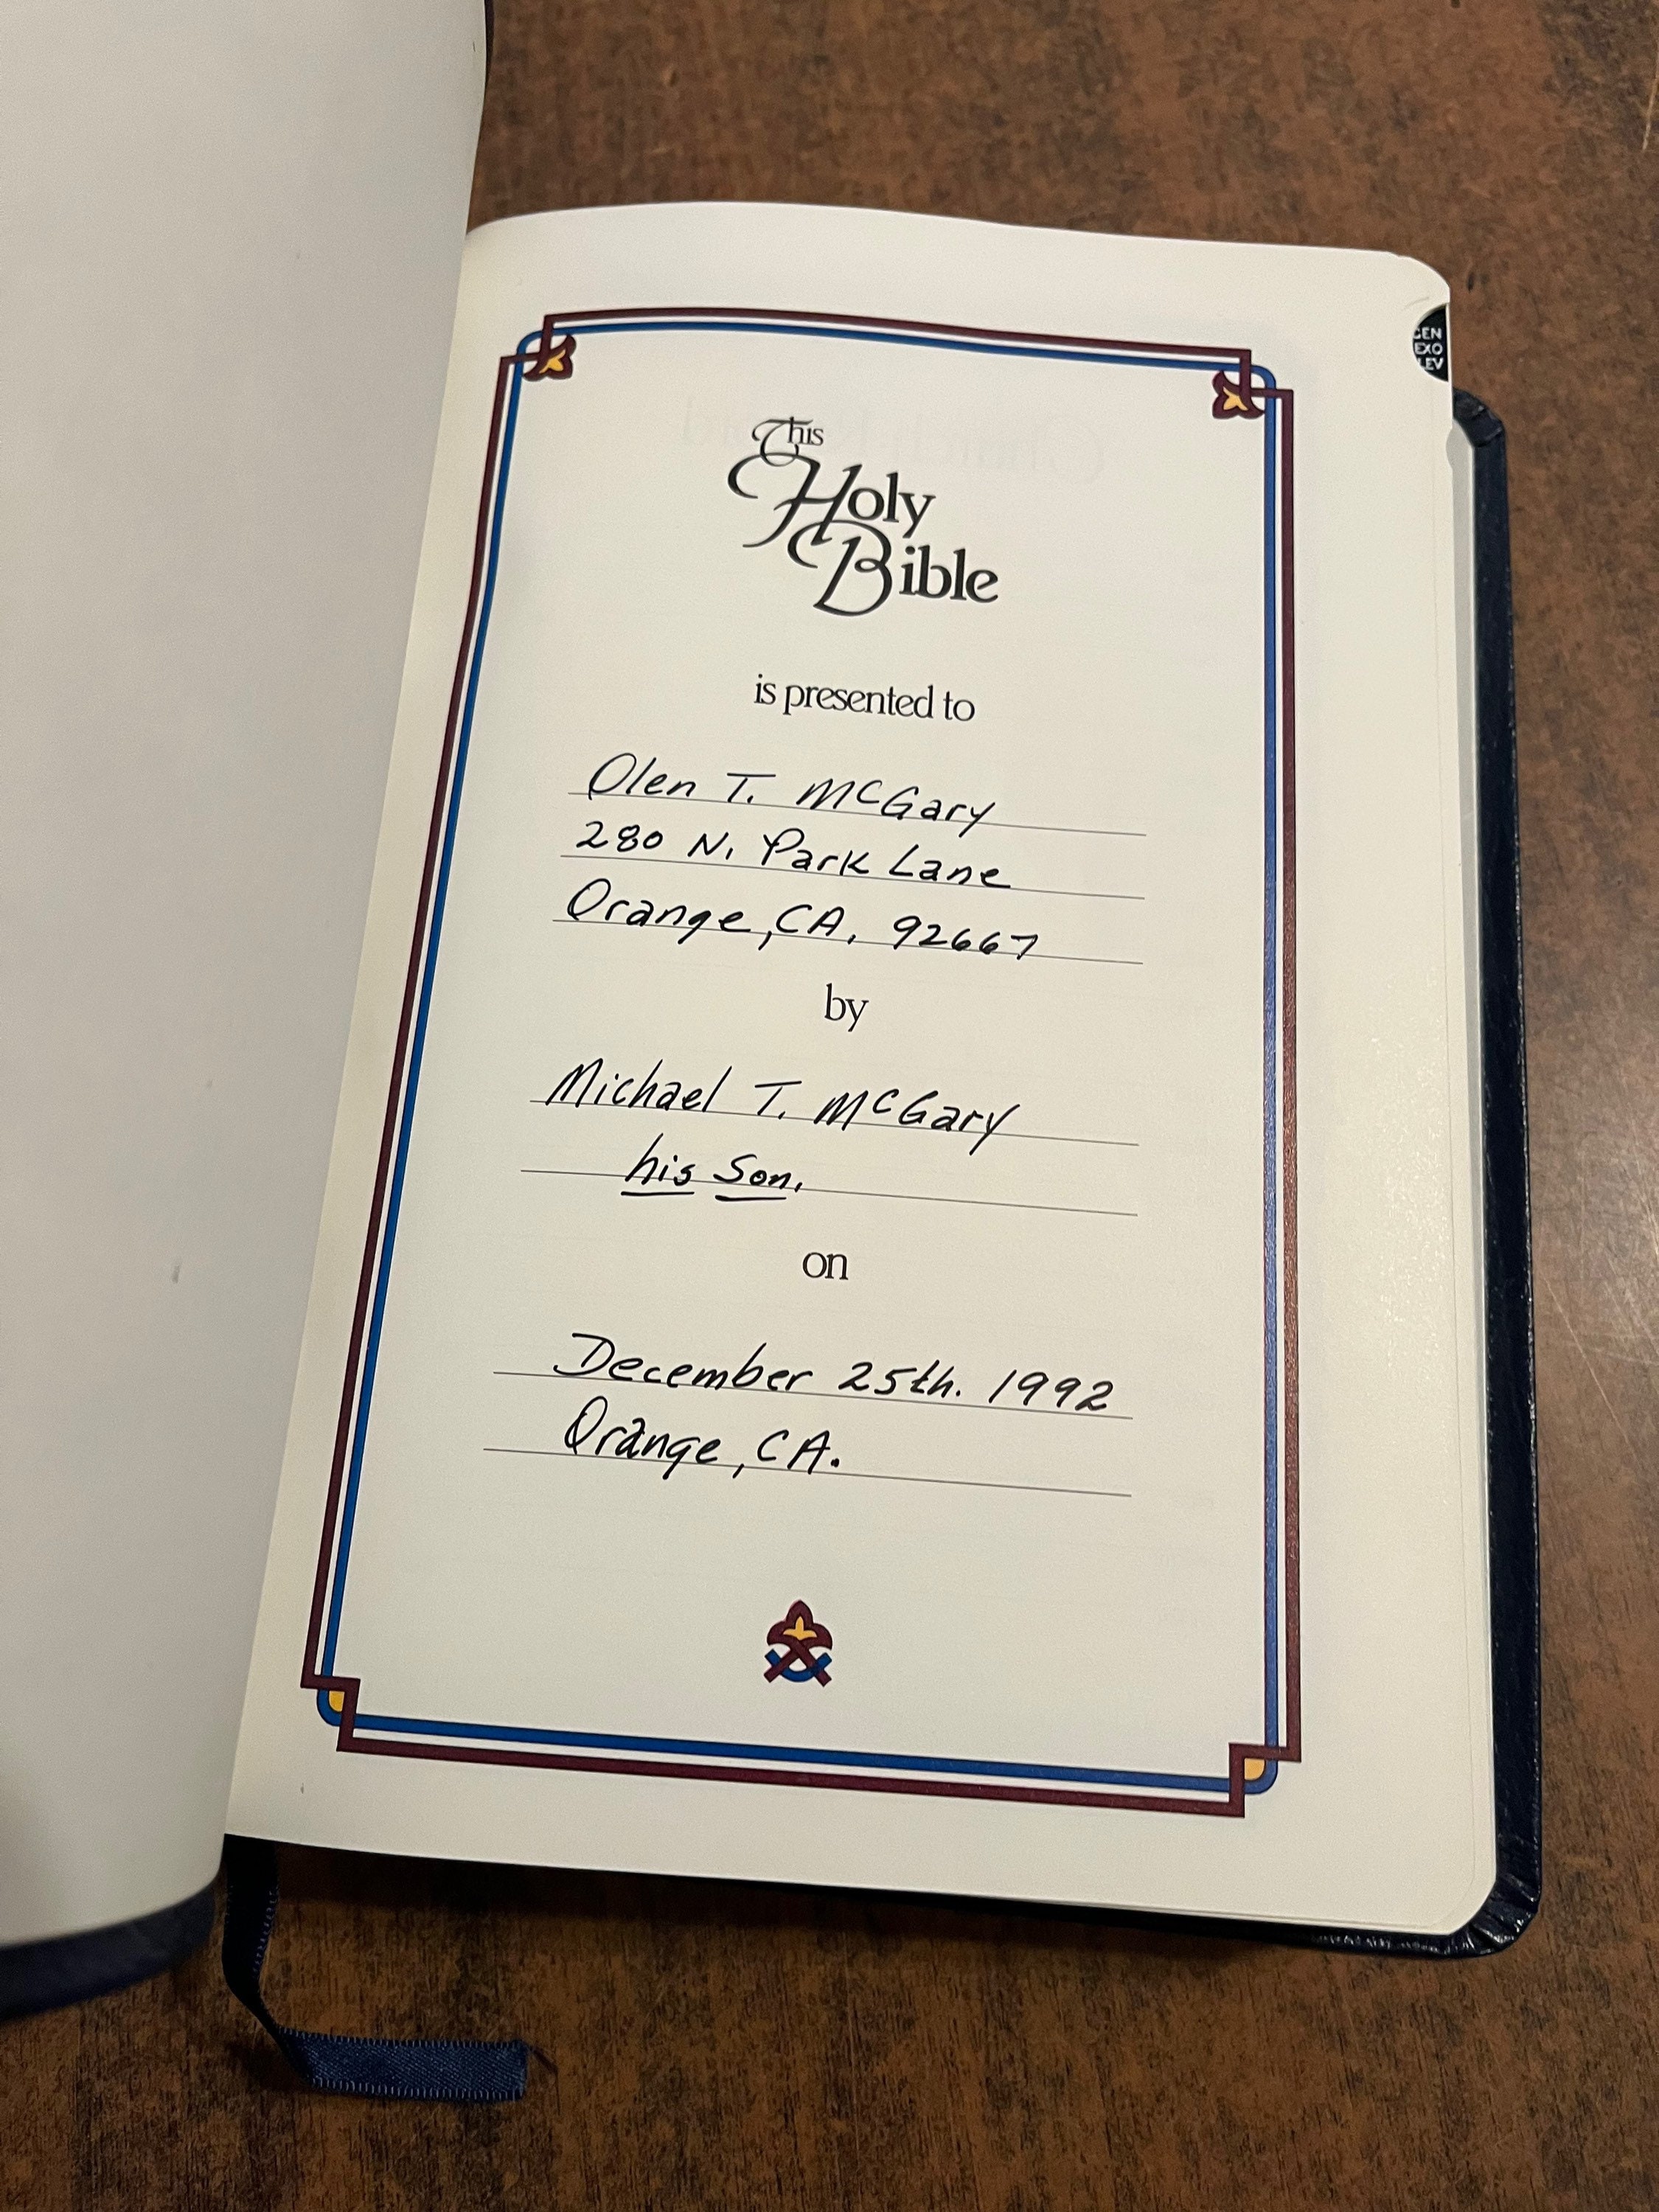 This
Holy
Bible
is presented to
Olen T. McGary
280 N. Park Lane
Orange, CA. 92667
by
Michael T. McGary
his Son.
on
December 25th. 1992
Orange, CA.
GEN
EXO
LEV